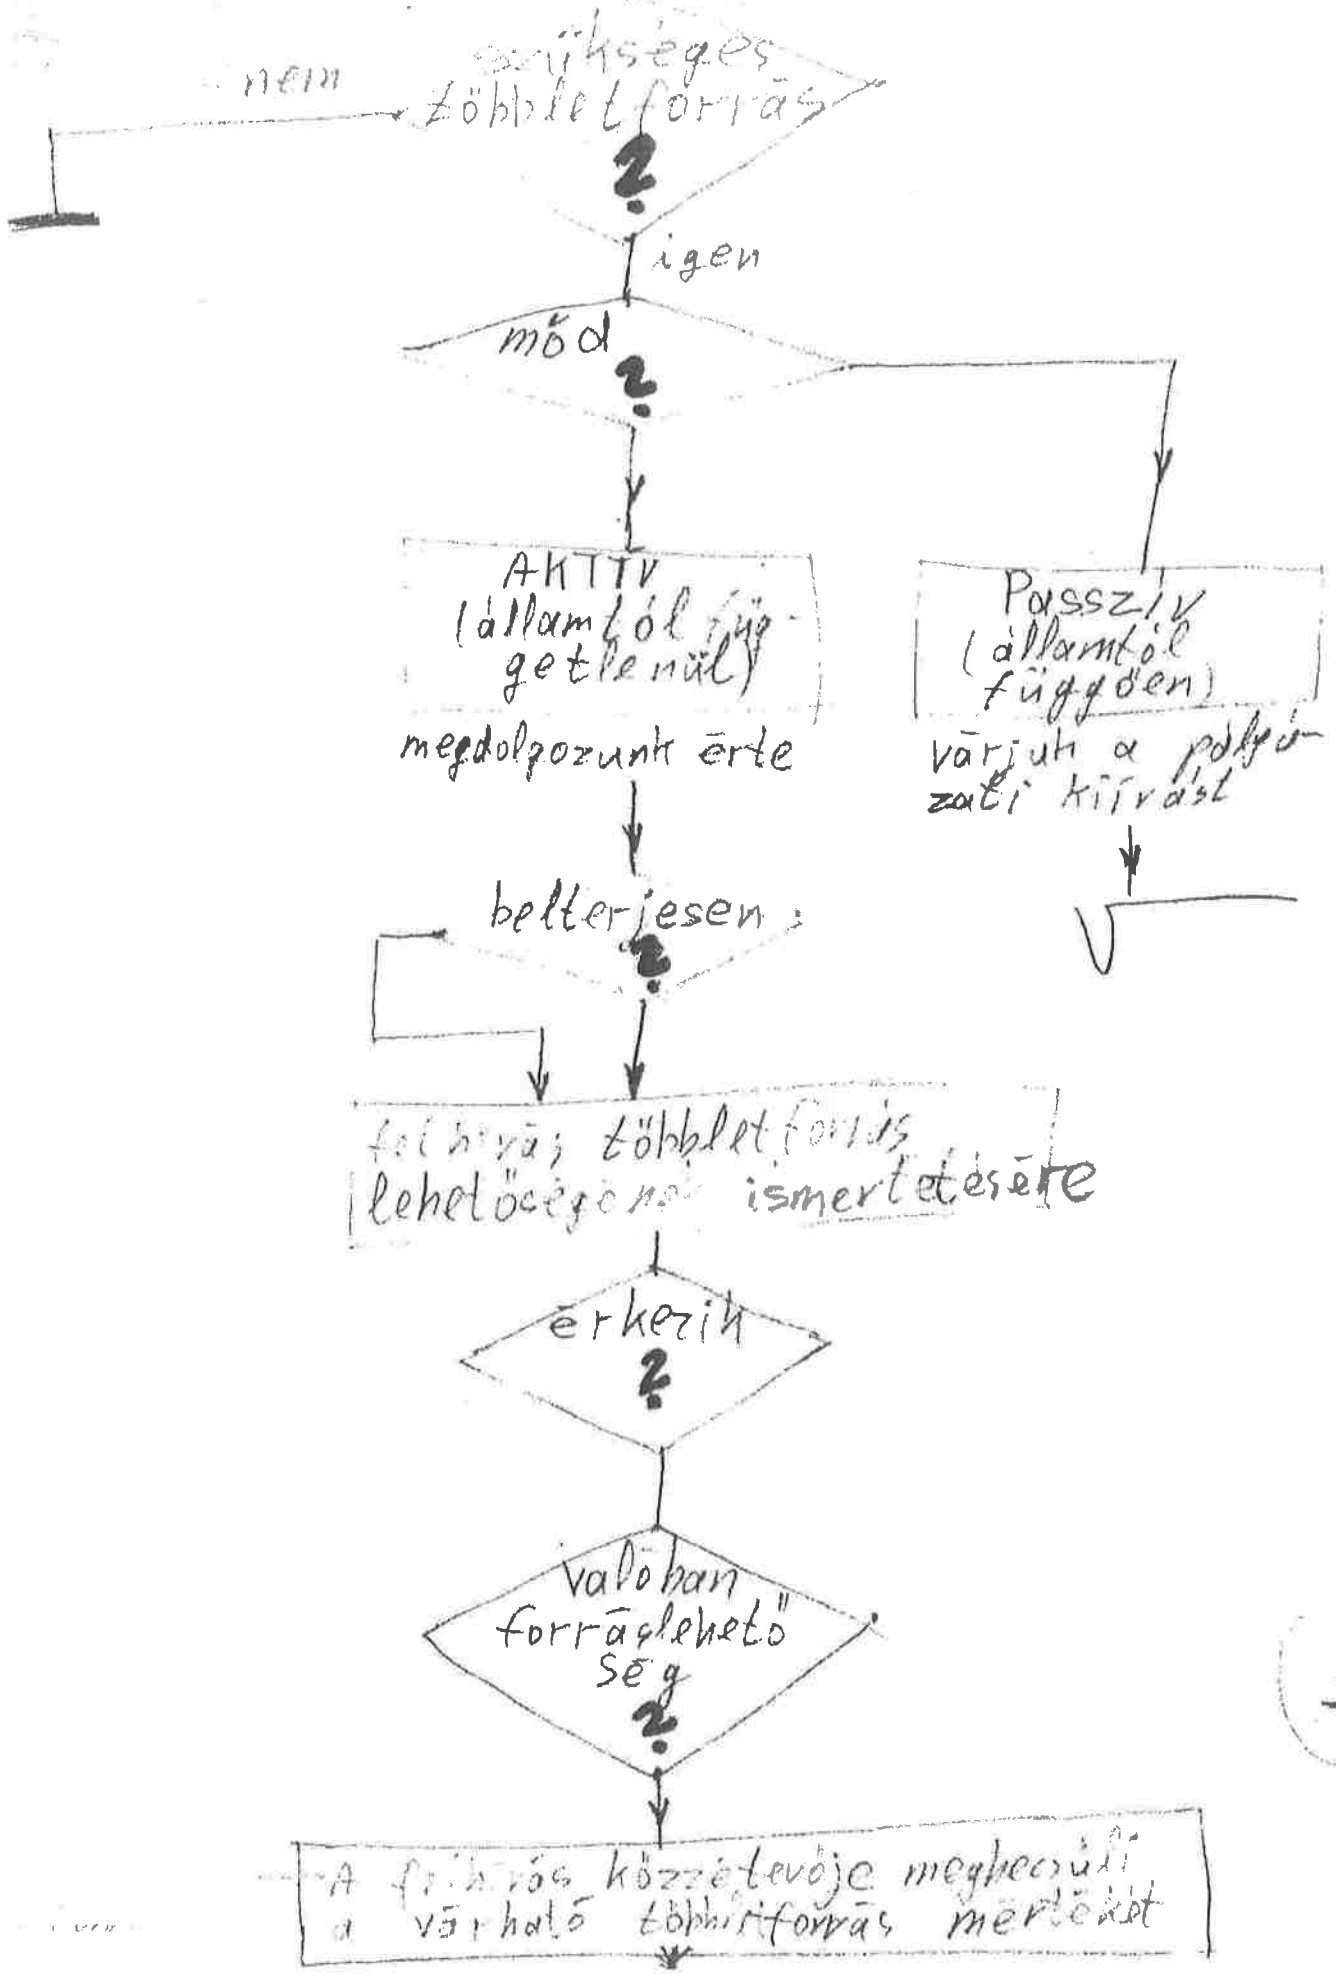 szükséges
nem
többletforrás
?
igen
mód
?
AKTIV
(államtól füg-
getlenül)
Passzív
(államtól
függően)
megdolgozunk érte
várjuk a pályá-
zati kiírást
belterjesen
?
felhívás többletforrás
lehetőségének ismertetésére
érkezik
?
valóban
forráslehető
ség
?
A felhívás közzétevője megbecsüli
a várható többletforrás mértékét